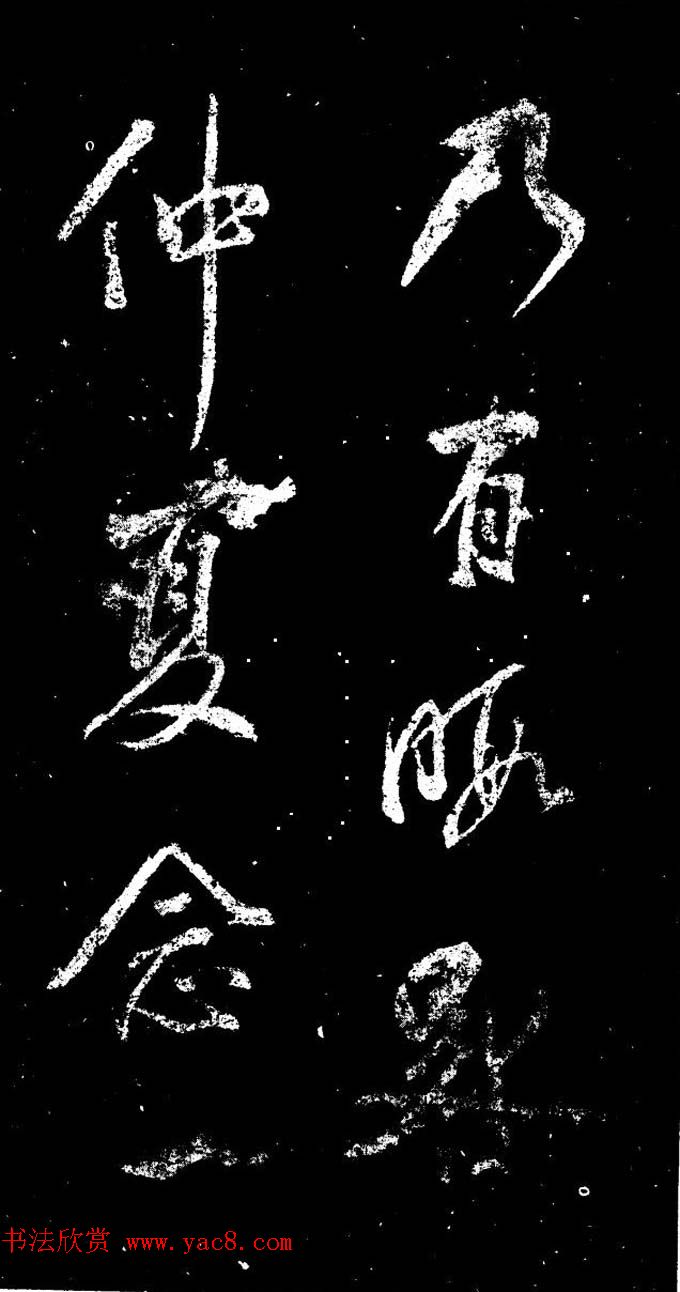 乃有
仲夏念一
书法欣赏 www.yac8.com